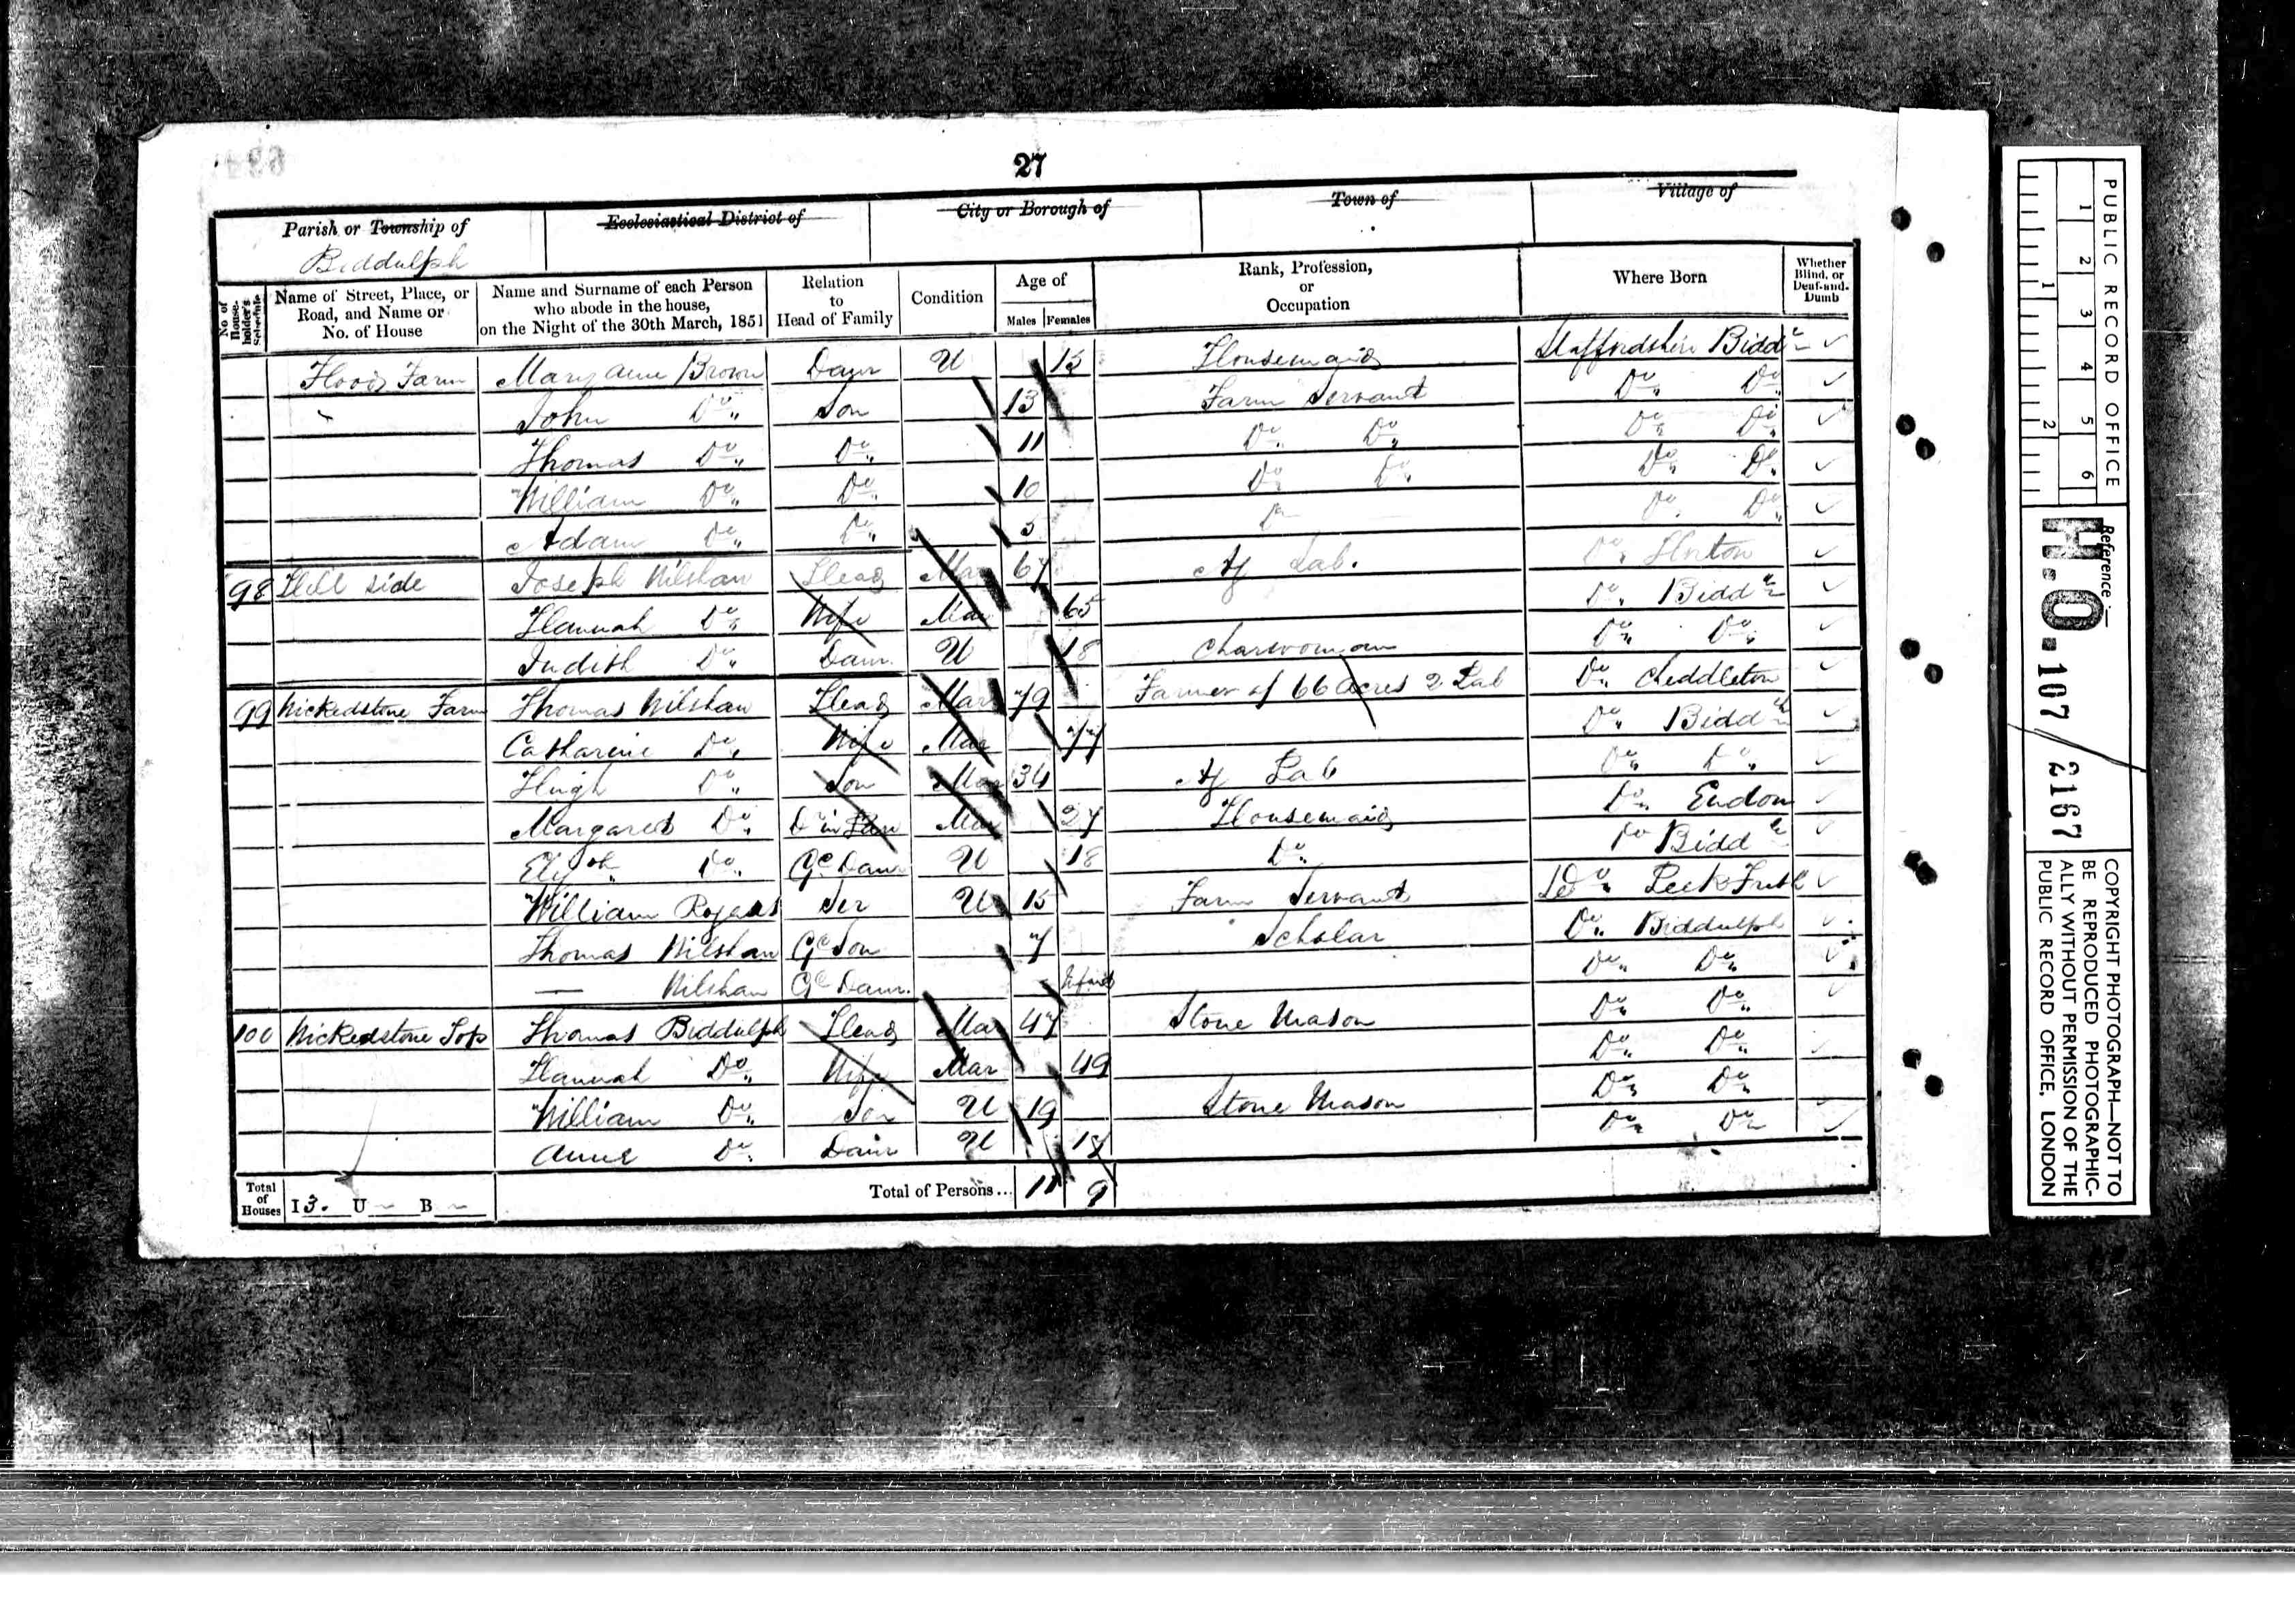 27
Parish or Township of
Biddulph
Ecclesiastical District of
City or Borough of
Town of
Village of
No. of House-holder's Schedule
Name of Street, Place, or Road, and Name or No. of House
Name and Surname of each Person who abode in the house, on the Night of the 30th March, 1851
Relation to Head of Family
Condition
Age of
Males Females
Rank, Profession, or Occupation
Where Born
Whether Blind, or Deaf-and-Dumb
Farm Mary Ann Brown Daur U 15 Housemaid Staffordshire Biddh
John Do Son 13 Farm Servant Do Do
Thomas Do Do 11 Do Do Do Do
William Do Do 10 Do Do Do Do
Adam Do Do 5 Do Do
98 Hill side Joseph Wilshaw Head Mar 67 Ag Lab. Do Horton
Hannah Do Wife Mar 65 Do Biddh
Judith Do Daur. U 18 Charwoman Do Do
99 Wickedstone Farm Thomas Wilshaw Head Mar 79 Farmer of 66 acres 2 Lab Do Cheddleton
Catharine Do Wife Mar 77 Do Biddh
Hugh Do Son Mar 34 Ag Lab Do Do
Margaret Do D in Law Mar 27 Housemaid Do Endon
Elizth Do Gd Daur U 18 Do Do Biddh
William Rogers Ser U 15 Farm Servant Do Leek Frith
Thomas Wilshaw Gd Son 7 Scholar Do Biddulph
— Wilshaw Gd Daur. Infant Do Do
100 Wickedstone Top Thomas Biddulph Head Mar 47 Stone Mason Do Do
Hannah Do Wife Mar 49 Do Do
William Do Son U 19 Stone Mason Do Do
Anne Do Daur U 18 Do Do
Total of Houses I 3. U ~ B ~
Total of Persons... 11 9
PUBLIC RECORD OFFICE
1 2 3 4 5 6
1 2
Reference:—
H.O. 107 / 2167
COPYRIGHT PHOTOGRAPH—NOT TO
BE REPRODUCED PHOTOGRAPHIC-
ALLY WITHOUT PERMISSION OF THE
PUBLIC RECORD OFFICE, LONDON